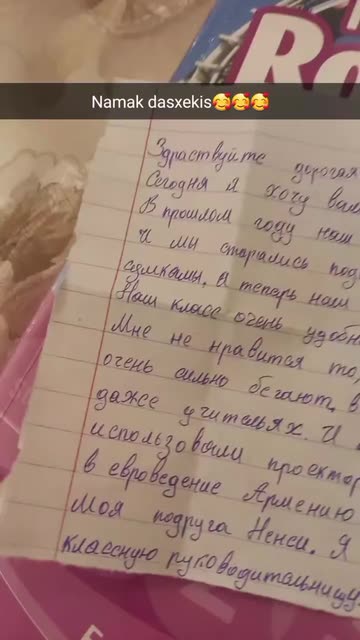 Namak dasxekis🥰🥰🥰
Ro
Здраствуйте дорогая
Сегодня я хочу вам
В прошлом году наш
И мы старались под
сумкамы, а теперь наш
Наш класс очень удобн
Мне не нравится то,
очень сильно бегают, в
даже учительях. И
использовали проектор
в евроведение Армению
Моя подруга Ненси. Я
классную руководительницу
E